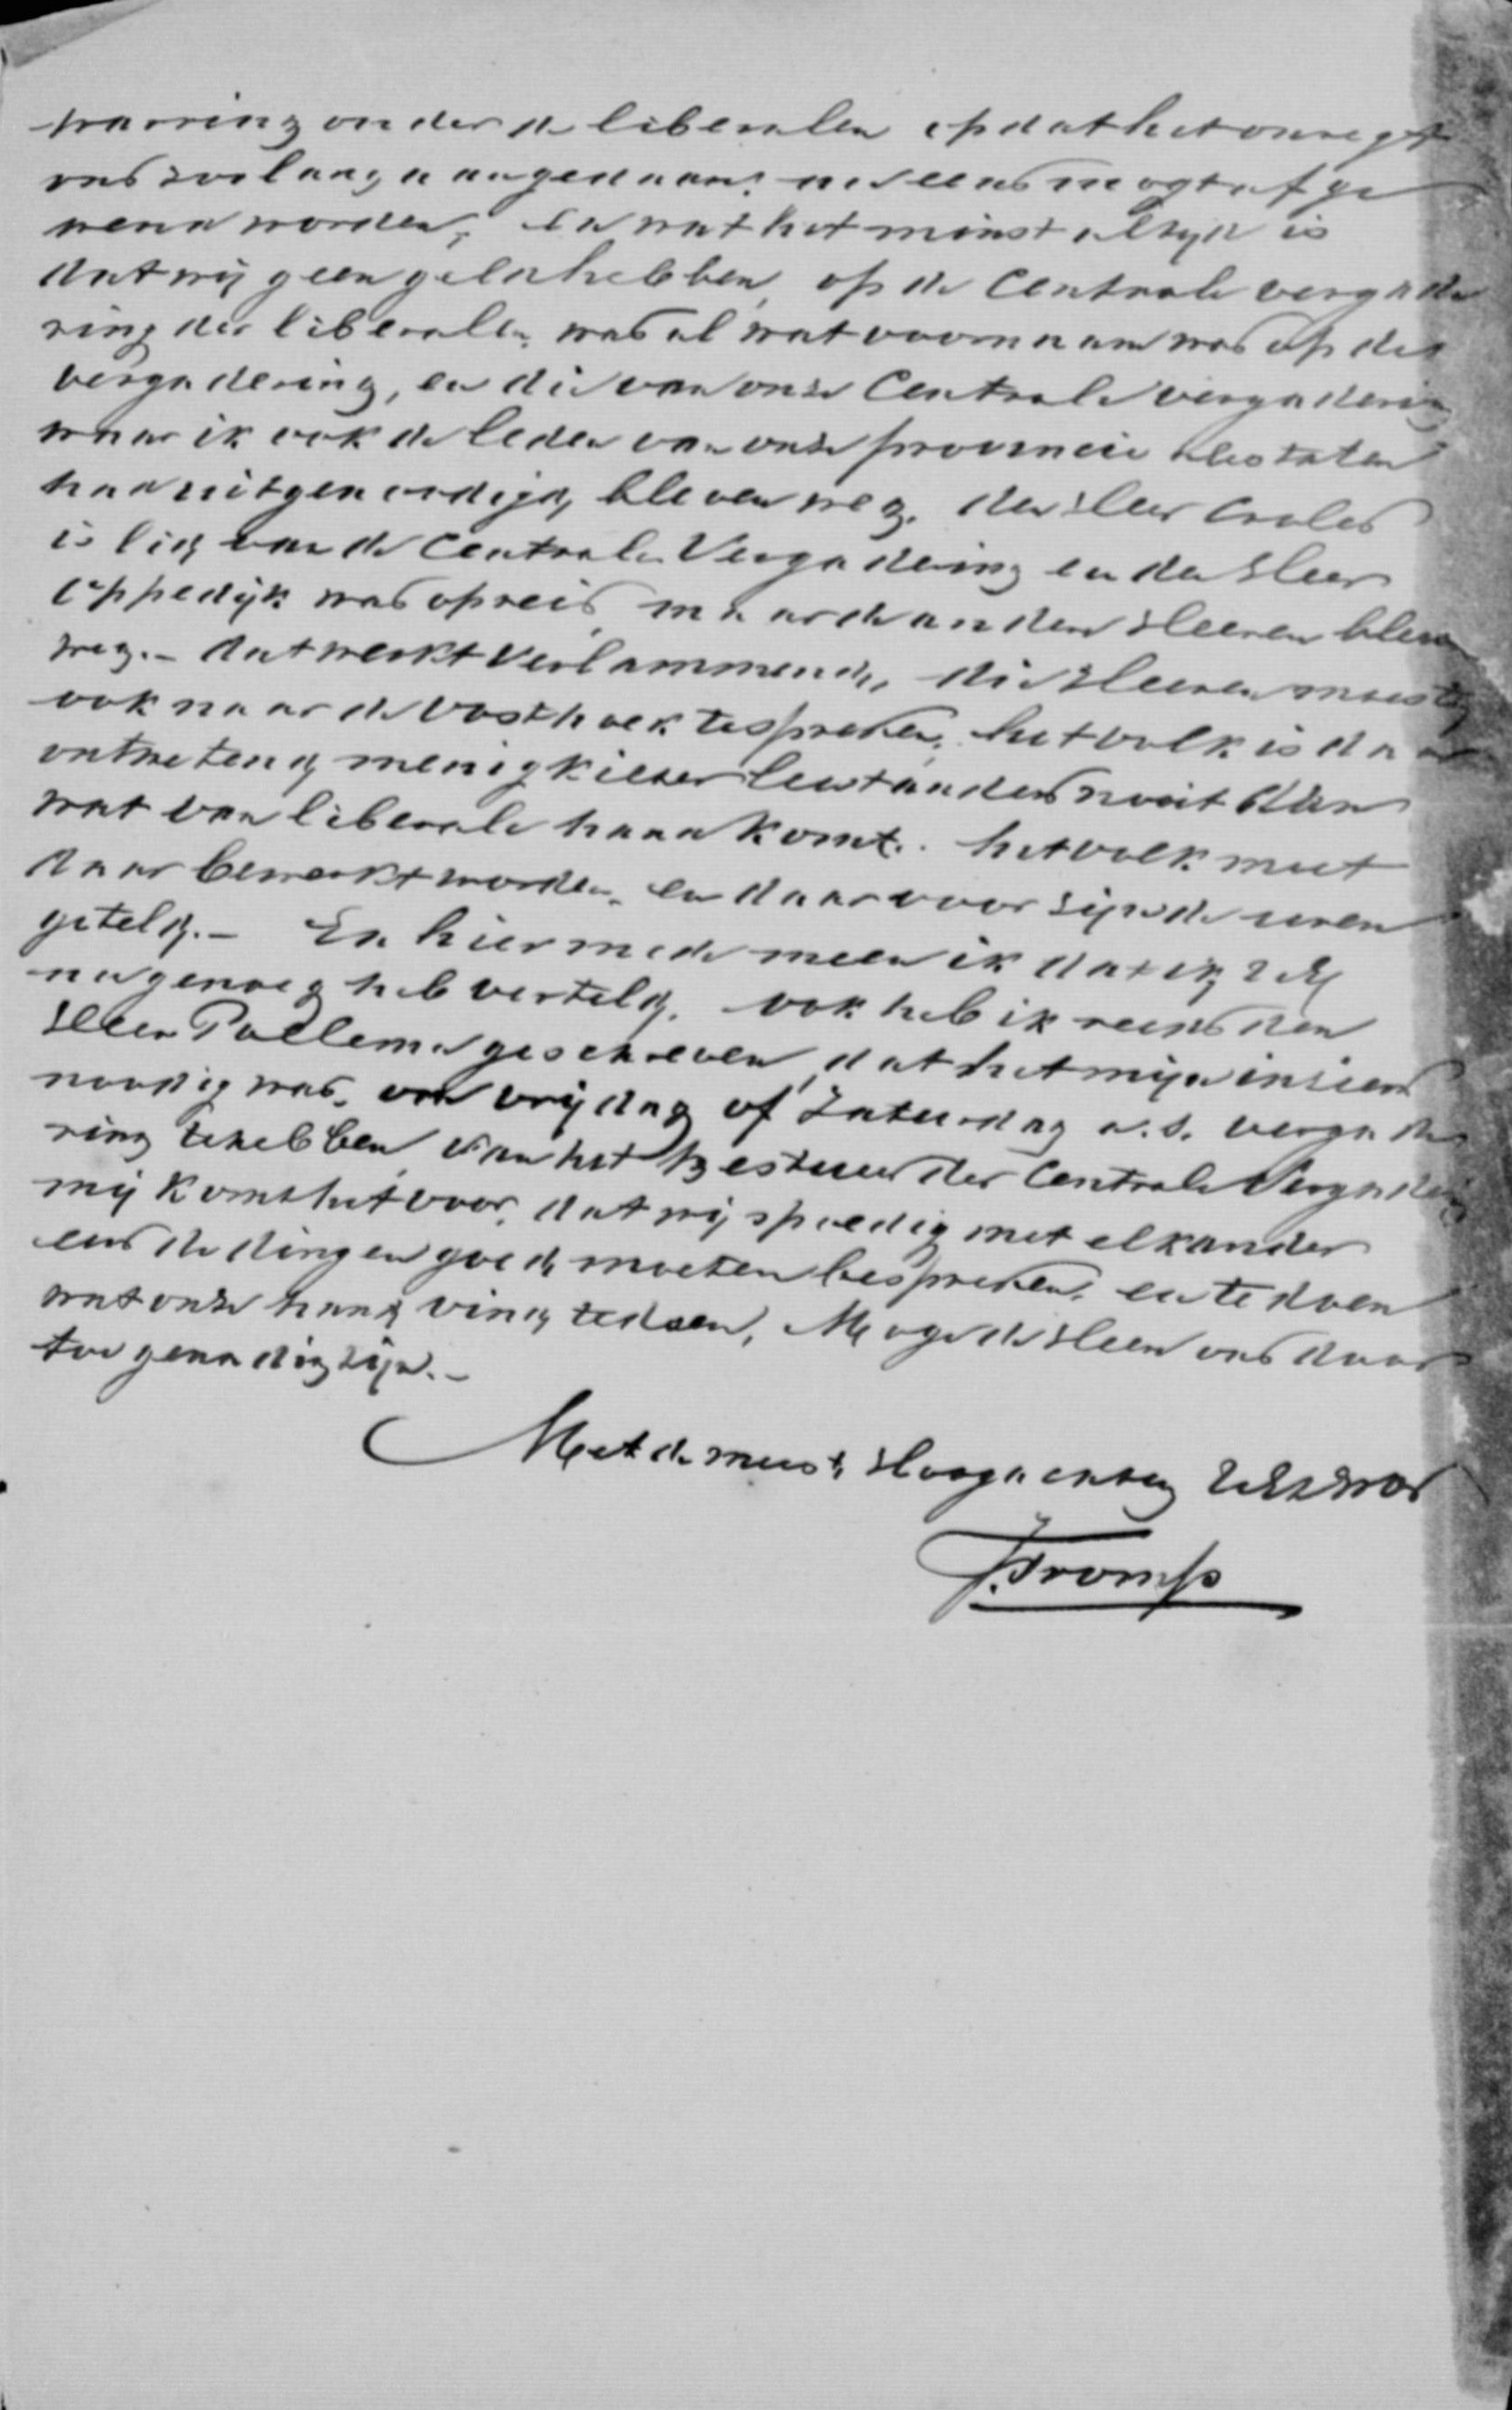 warring onder de liberalen opdat het onregt
ons zoolang aangedaan nu eens mogt afge
wend worden, en wat het minst altijd is
dat wij geen geld hebben, op de Centrale vergade
ring der liberalen was al wat voornaam was op die
vergadering, en die van onze Centrale vergadering
waar ik ook de leden van onze provincie staten
had uitgenoodigd, bleven weg. den Heer
is lid van de Centrale Vergadering en den Heer
Eppedijk was op reis, maar de anderen Heeren bleven
weg. – dat werkt verlammende, die Heeren moesten
ook naar de Oosthoek te spreken, het volk is daar
ontwetend, menig kiezer leest anders nooit dan
wat van liberale hand komt. het volk moet
daar bewerkt worden, en daarvoor zijn de uren
geteld. – En hiermede meen ik dat ik UE
nu genoeg heb verteld. ook heb ik reeds den
Heer Poelema geschreven, dat het mijn inziens
noodig was, om vrijdag of Zaturdag a.s. vergade
ring te hebben van het Bestuur der Centrale Vergadering
mij komt het voor, dat wij spoedig met elkander
eens de dingen goed moeten bespreken, en te doen
wat onze hand vind te doen, Moge de Heere ons daar
toe genadig zijn. –
Met de meeste Hoogachting
Tromp